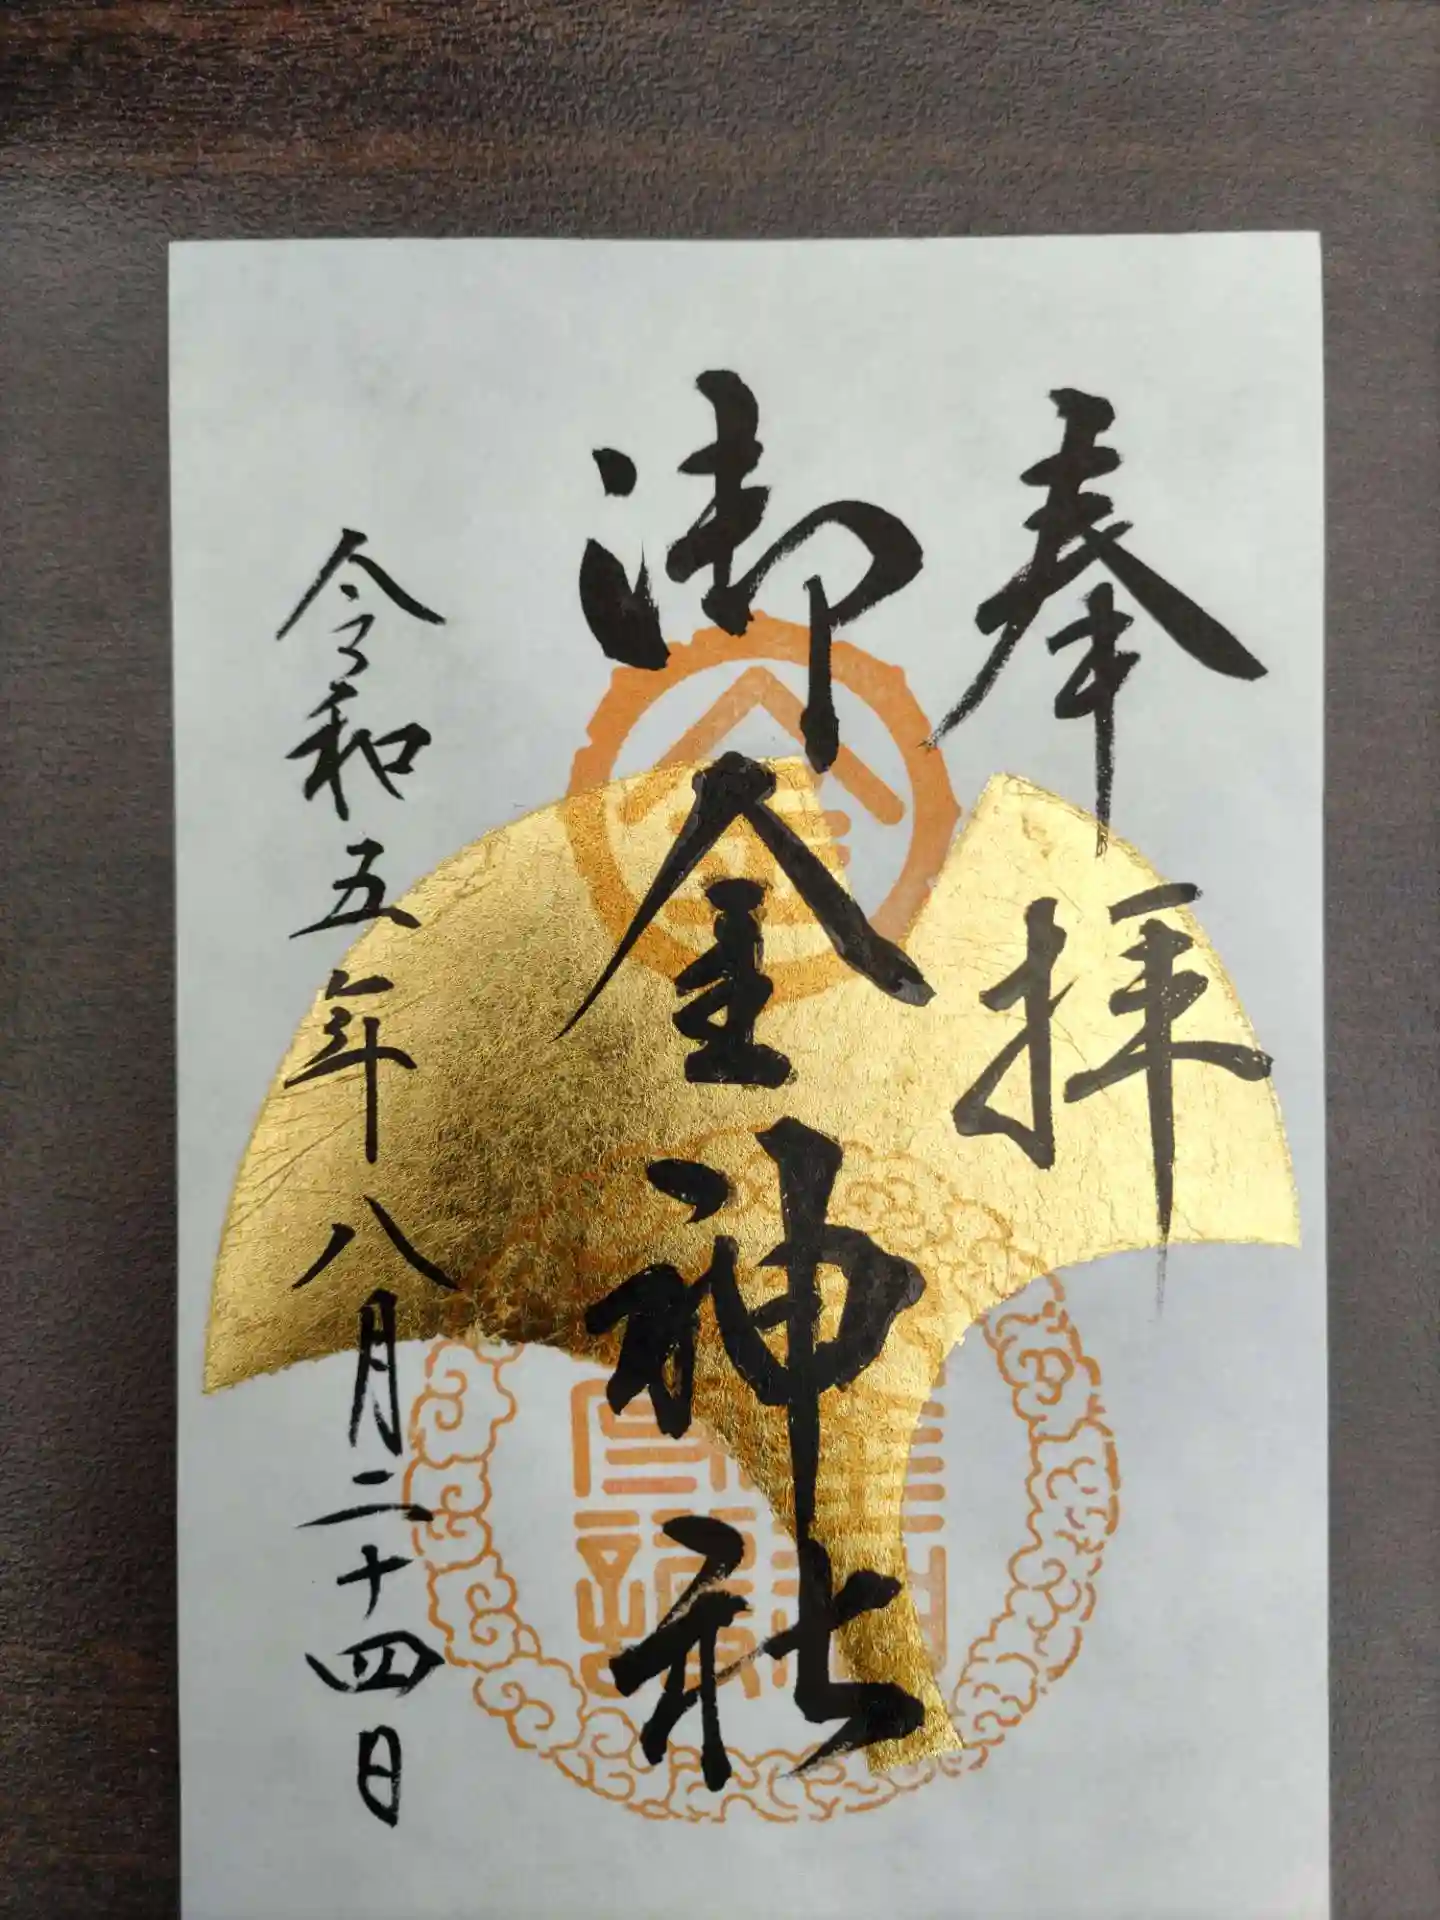 奉拝
御金神社
令和五年八月二十四日
金